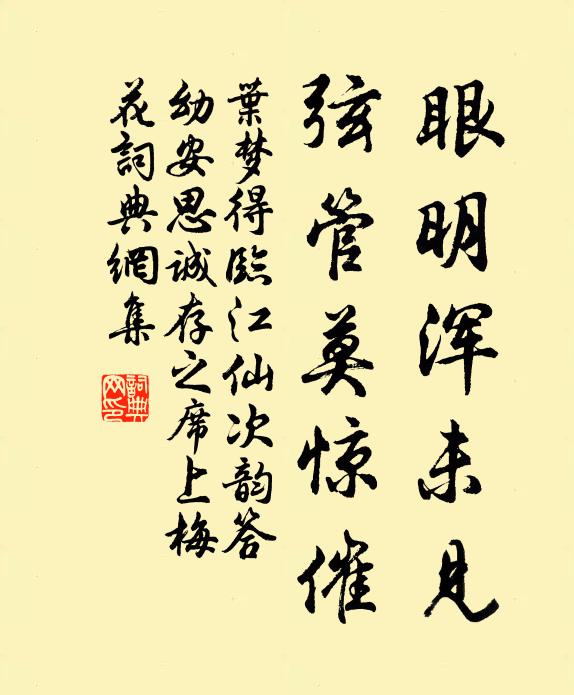 眼明浑未见
弦管莫惊催
葉梦得臨江仙次韵答
幼安思诚存之席上梅
花詞典網集
詞典网印